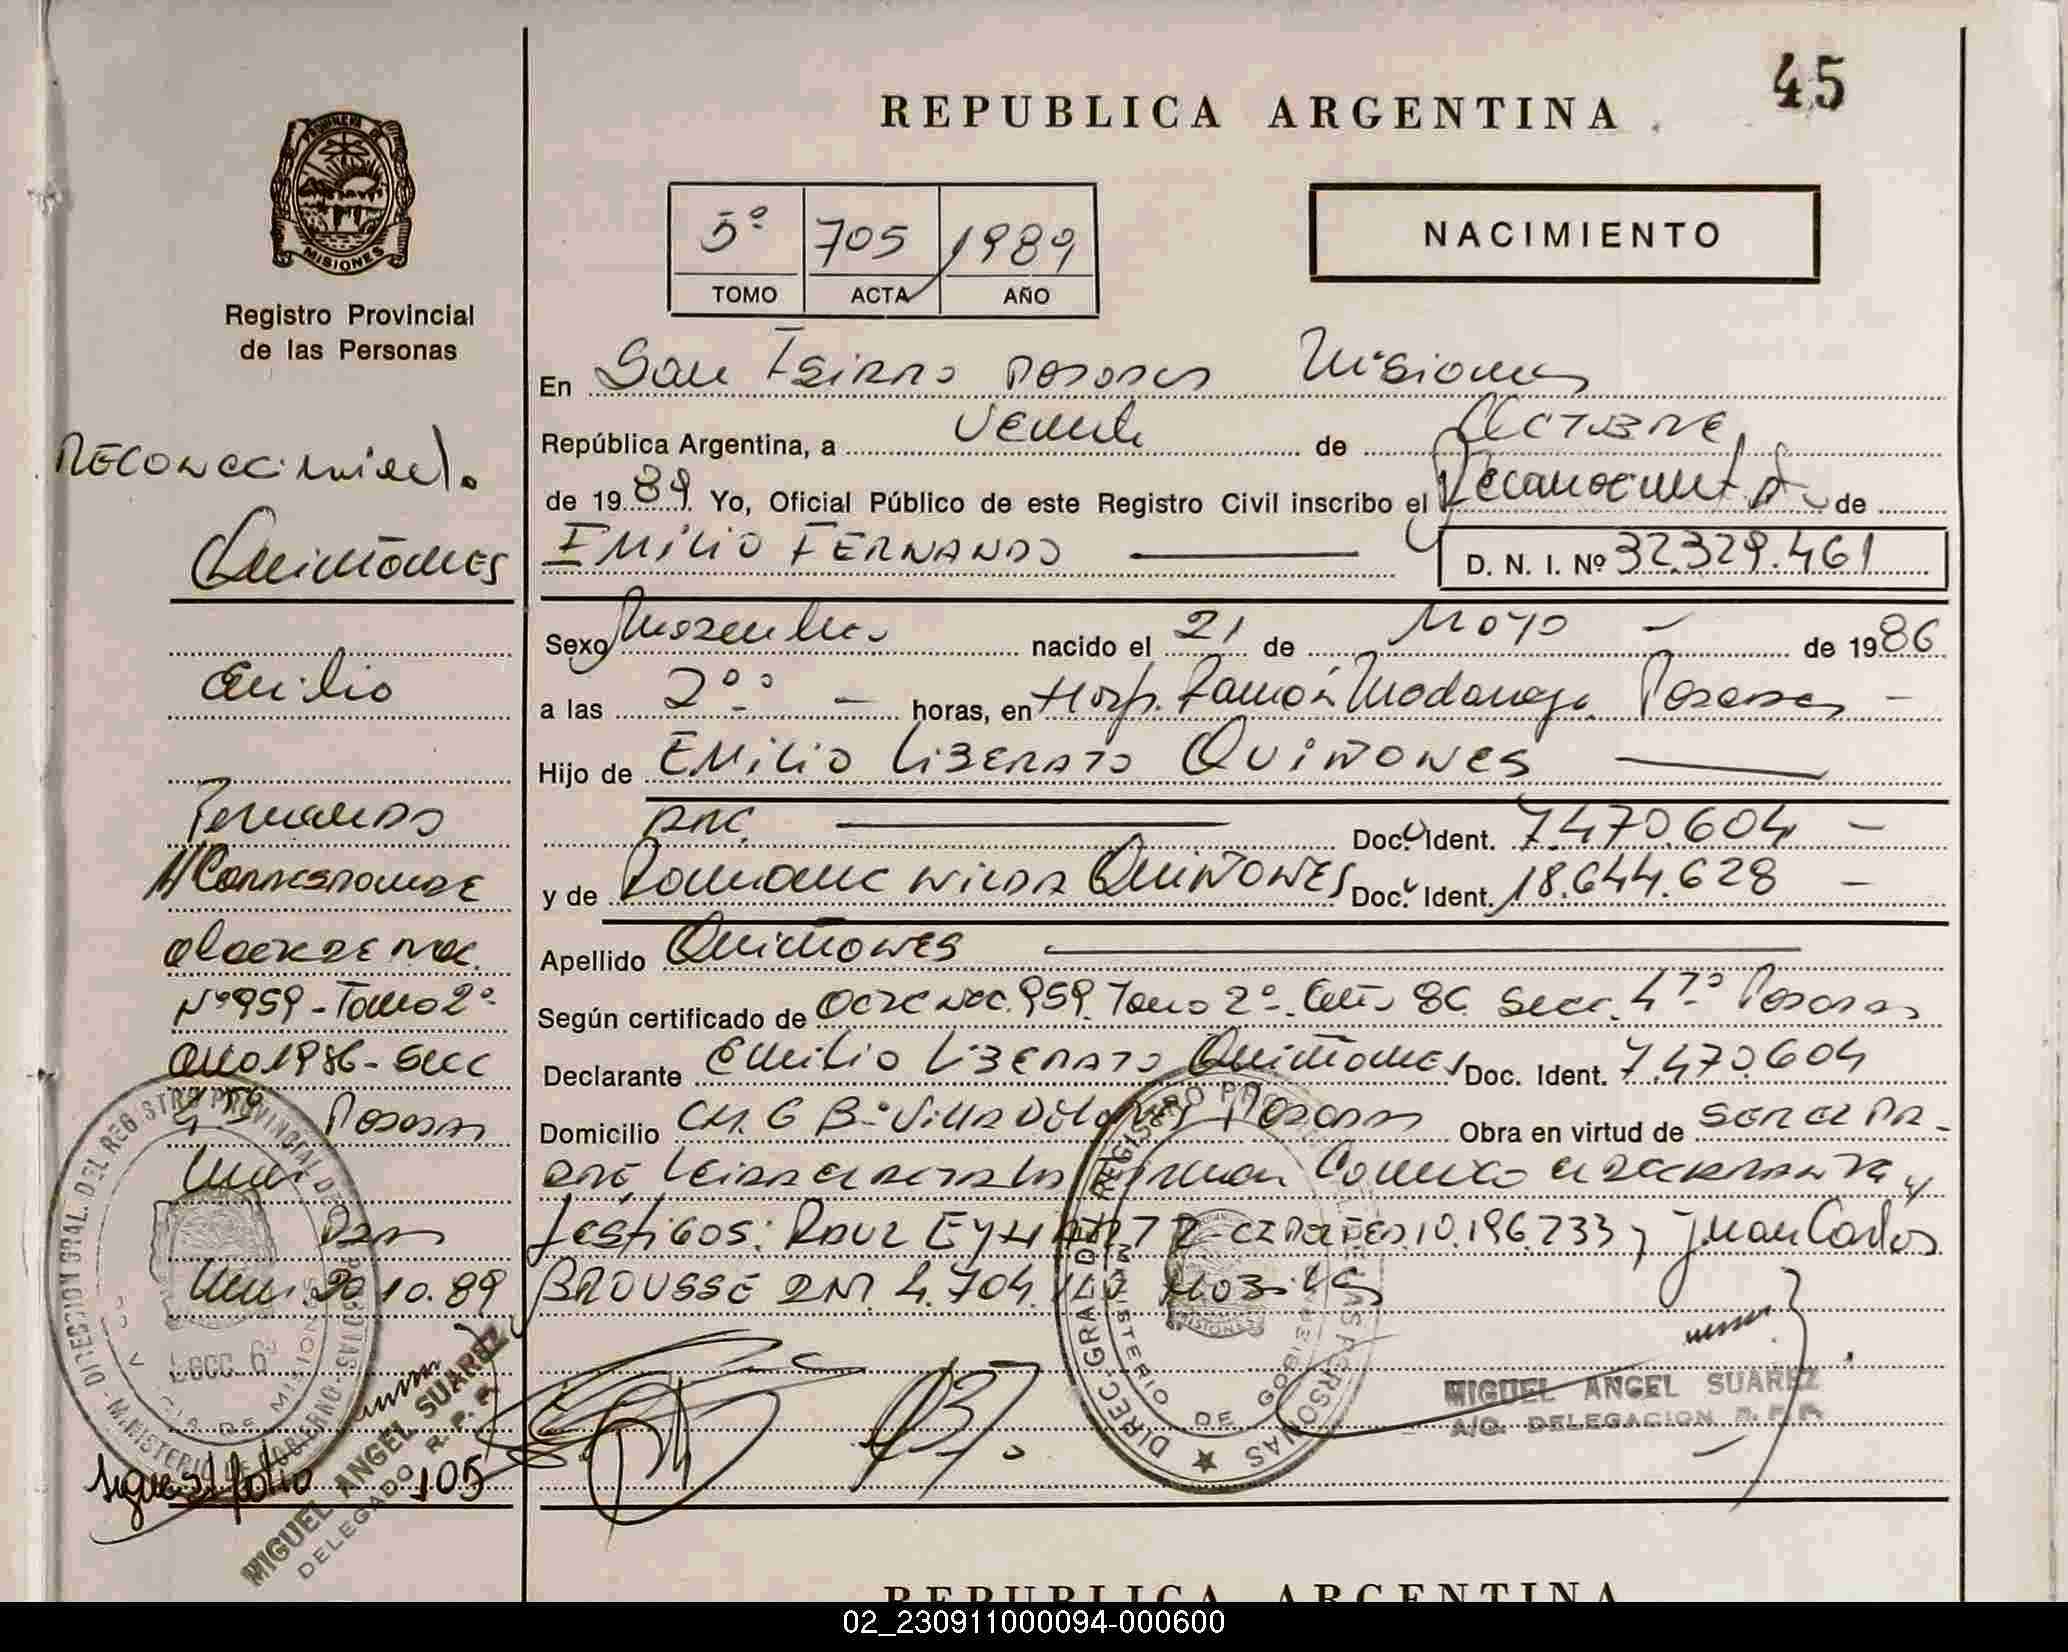 45
REPUBLICA ARGENTINA
PROVINCIA DE
MISIONES
Registro Provincial
de las Personas
5º 705 1989
TOMO ACTA AÑO
NACIMIENTO
En San Isidro Posadas Misiones
República Argentina, a veinte de Octubre
de 1989. Yo, Oficial Público de este Registro Civil inscribo el Reconocimiento de
EMILIO FERNANDO
D. N. I. Nº 32.329.461
Sexo Masculino nacido el 21 de Mayo de 1986
a las 2º⁰ horas, en Hosp. Ramón Madariaga Posadas
Hijo de EMILIO LIBERATO QUIÑONES
ARG. Doc. Ident. 7.470.604
y de Ramona NILDA QUIÑONES Doc. Ident. 18.644.628
Apellido Quiñones
Según certificado de Acta Nac. 959. Tomo 2º. Año 86 Secc. 4ta Posadas
Declarante Emilio LIBERATO Quiñones Doc. Ident. 7.470.604
Domicilio CH. 6 Bº Villa Posadas Obra en virtud de SER EL PA-
DRE, Leida el acta la Firman Conmigo el declarante y
testigos: RAUL 10.196.733 y Juan Carlos
BROUSSE DNI 4.704.
Reconocimiento
Quiñones
Emilio
Fernando
Corresponde
al acta de nac.
Nº 959 - Tomo 2º
Año 1986 - Secc
4ta Posadas
20.10.89
Sigue al folio 105
DIRECCION GRAL. DEL REGISTRO PROVINCIAL DE LAS PERSONAS
MINISTERIO DE GOBIERNO
PROVINCIA DE MISIONES
MIGUEL ANGEL SUAREZ
DELEGADO R. P. P.
DIREC. GRAL. DEL REGISTRO PROVINCIAL DE LAS PERSONAS
MINISTERIO DE GOBIERNO
MISIONES
MIGUEL ANGEL SUAREZ
A/C. DELEGACION R. P. P.
REPUBLICA ARGENTINA
02_230911000094-000600